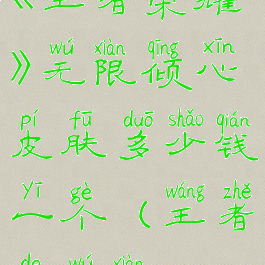 《王者荣耀
wú xiàn qīng xīn
》无限倾心
pí fū duō shǎo qián
皮肤多少钱
yī gè wáng zhě
一个（王者
de wú xiàn